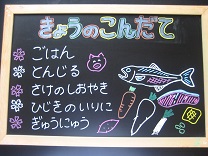 きょうのこんだて
ごはん
とんじる
さけのしおやき
ひじきのいりに
ぎゅうにゅう